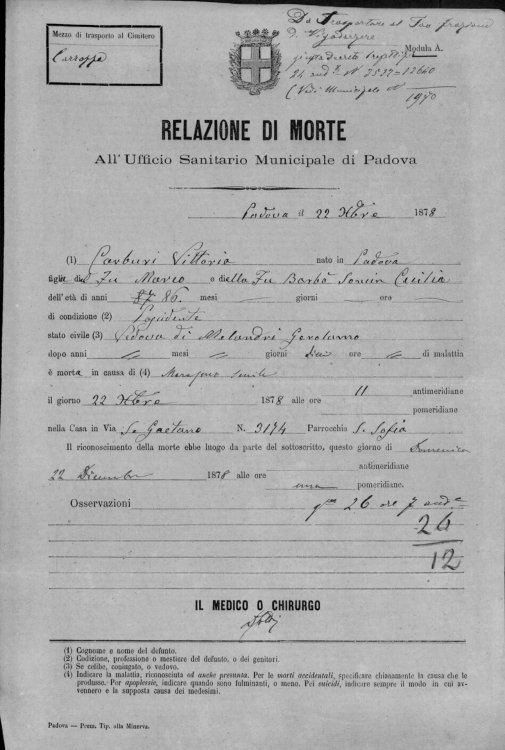 Mezzo di trasporto al Cimitero
Carrozza
Da Trasportare al
frazione
di Vigodarzere
Modula A.
N 2527=12640
(Vedi Municipale N
1970
RELAZIONE DI MORTE
All' Ufficio Sanitario Municipale di Padova
Padova il 22 Xbre 1878
(1) Carburi Vittoria nato in Padova
figlia di Fu Marco e della Fu Barbò Soncin Cecilia
dell'età di anni 87 86. mesi giorni ore
di condizione (2) Possidente
stato civile (3) Vedova di Melandri Gerolamo
dopo anni " mesi " giorni dieci ore " di malattia
è morta in causa di (4) Marasmo senile
il giorno 22 Xbre 1878 alle ore 11 antimeridiane
pomeridiane
nella Casa in Via S. Gaetano N. 3174 Parrocchia S. Sofia
Il riconoscimento della morte ebbe luogo da parte del sottoscritto, questo giorno di Domenica
22 Dicembre 1878 alle ore antimeridiane
una pomeridiane.
Osservazioni 26 ore 7
26
12
IL MEDICO O CHIRURGO
(1) Cognome e nome del defunto.
(2) Codizione, professione o mestiere del defunto, o dei genitori.
(3) Se celibe, coniugato, o vedovo.
(4) Indicare la malattia, riconosciuta od anche presunta. Per le morti accidentali, specificare chianamente la causa che le
produsse. Per apoplessie, indicare quando sono fulminanti, o meno. Pei suicidi, indicare sempre il modo in cui av-
vennero e la supposta causa dei medesimi.
Padova — Prem. Tip. alla Minerva.